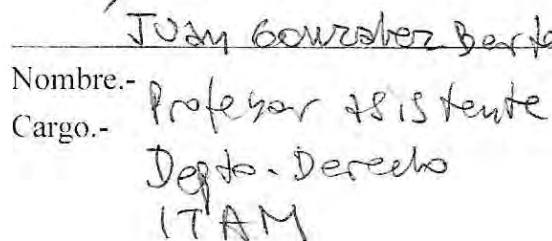 Juan Gonzalez Berto
Nombre.- Profesor asistente
Cargo.-
Depto. Derecho
ITAM